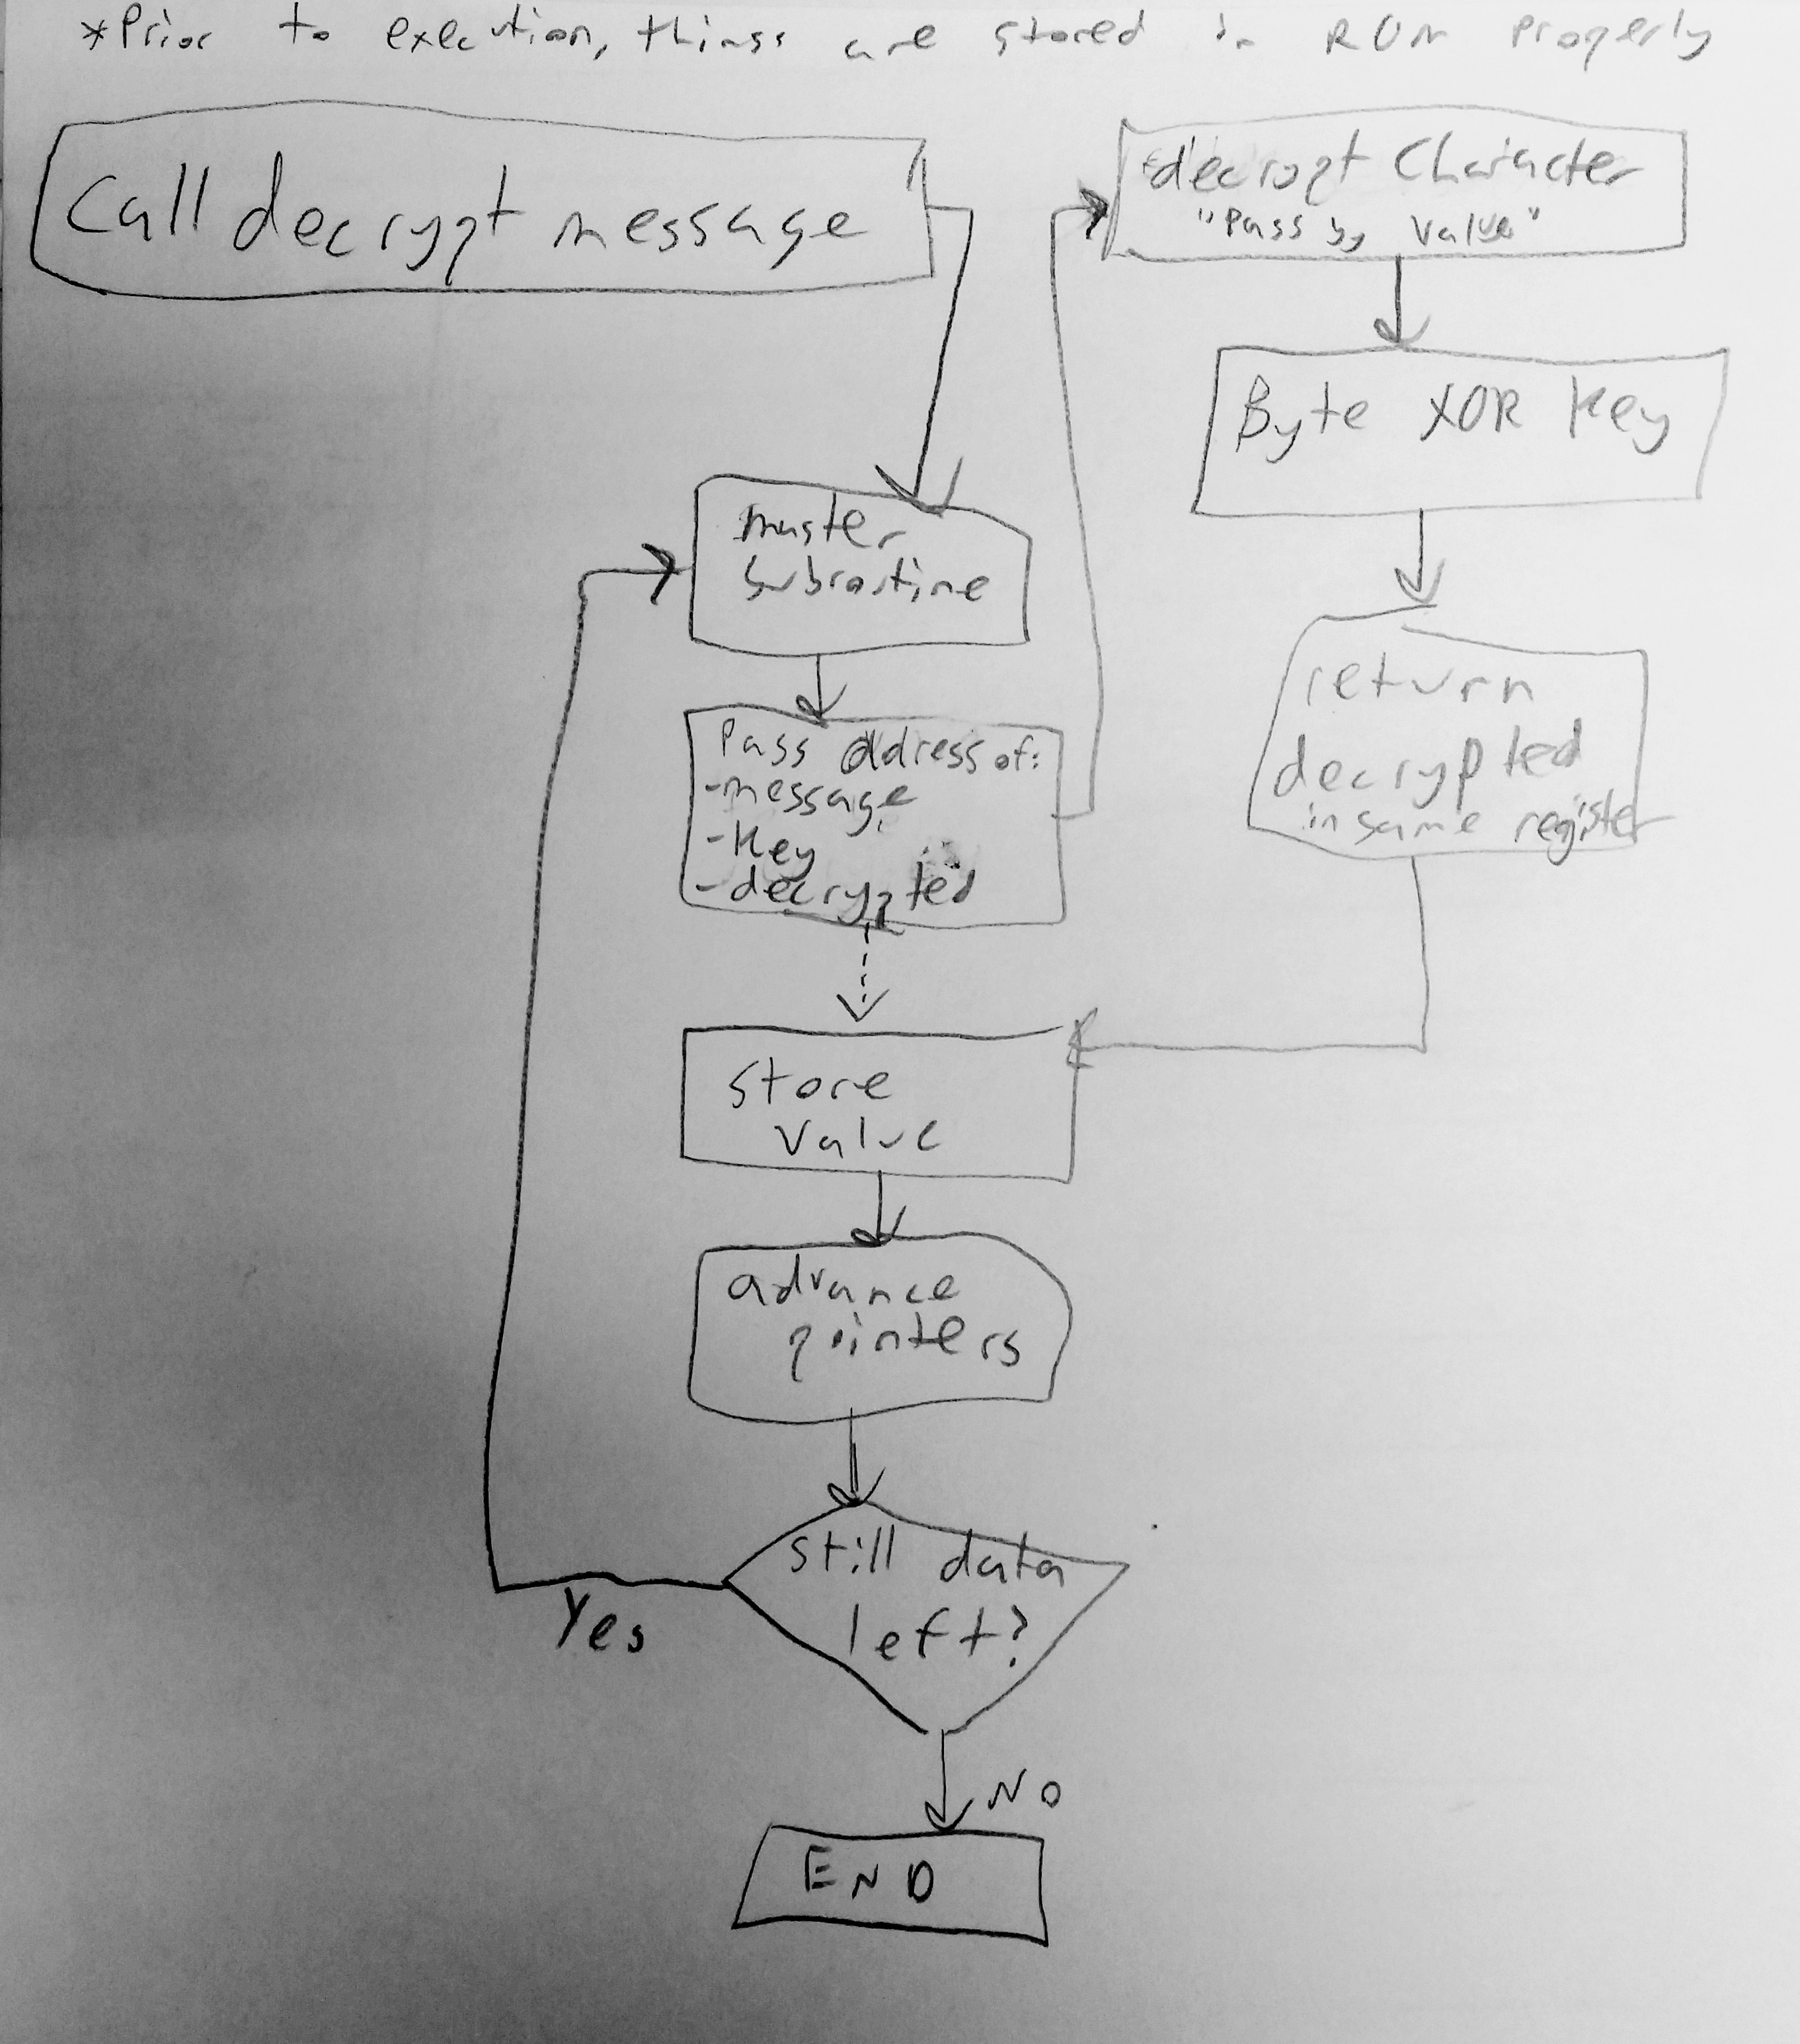 *Prior to execution, things are stored in ROM properly
Call decrypt message
master
subroutine
Pass address of:
-message
-key
-decrypted
store
value
advance
pointers
still data
left?
Yes
No
END
decrypt character
"Pass by value"
Byte XOR key
return
decrypted
in same register